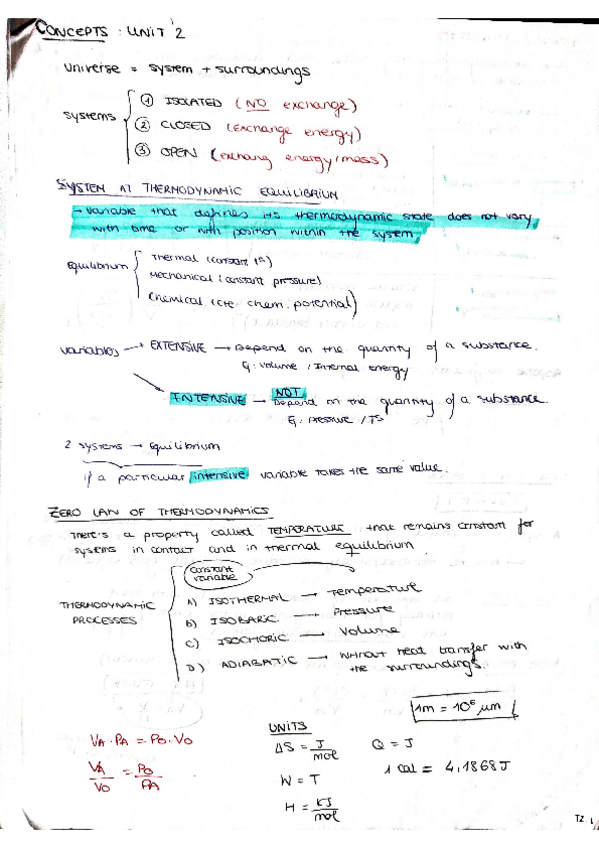 CONCEPTS : UNIT 2
Universe = system + surroundings
systems
① ISOLATED (NO exchange)
② CLOSED (exchange energy)
③ OPEN (exchang energy/mass)
SYSTEM AT THERMODYNAMIC EQUILIBRIUM
→ variable that defines its thermodynamic state does not vary
with time or with position within the system
equilibrium
Thermal (constant Tª)
Mechanical (constant pressure)
Chemical (cte chem. potential)
Variables → EXTENSIVE → Depend on the quantity of a substance.
Ej: volume / Internal energy
INTENSIVE → NOT Depend on the quantity of a substance.
Ej: Pressure / Tª
2 systems → Equilibrium
if a particular intensive variable takes the same value.
ZERO LAW OF THERMODYNAMICS
There's a property called TEMPERATURE that remains constant for
systems in contact and in thermal equilibrium.
constant
variable
THERMODYNAMIC
PROCESSES
A) ISOTHERMAL → Temperature
B) ISOBARIC → Pressure
C) ISOCHORIC → Volume
D) ADIABATIC → Without heat transfer with
the surroundings.
1m = 10⁶ µm
VA · PA = PO · VO
VA/VO = PO/PA
UNITS
ΔS = J/mol
Q = J
W = T
1 cal = 4,1868 J
H = KJ/mol
T2. 1